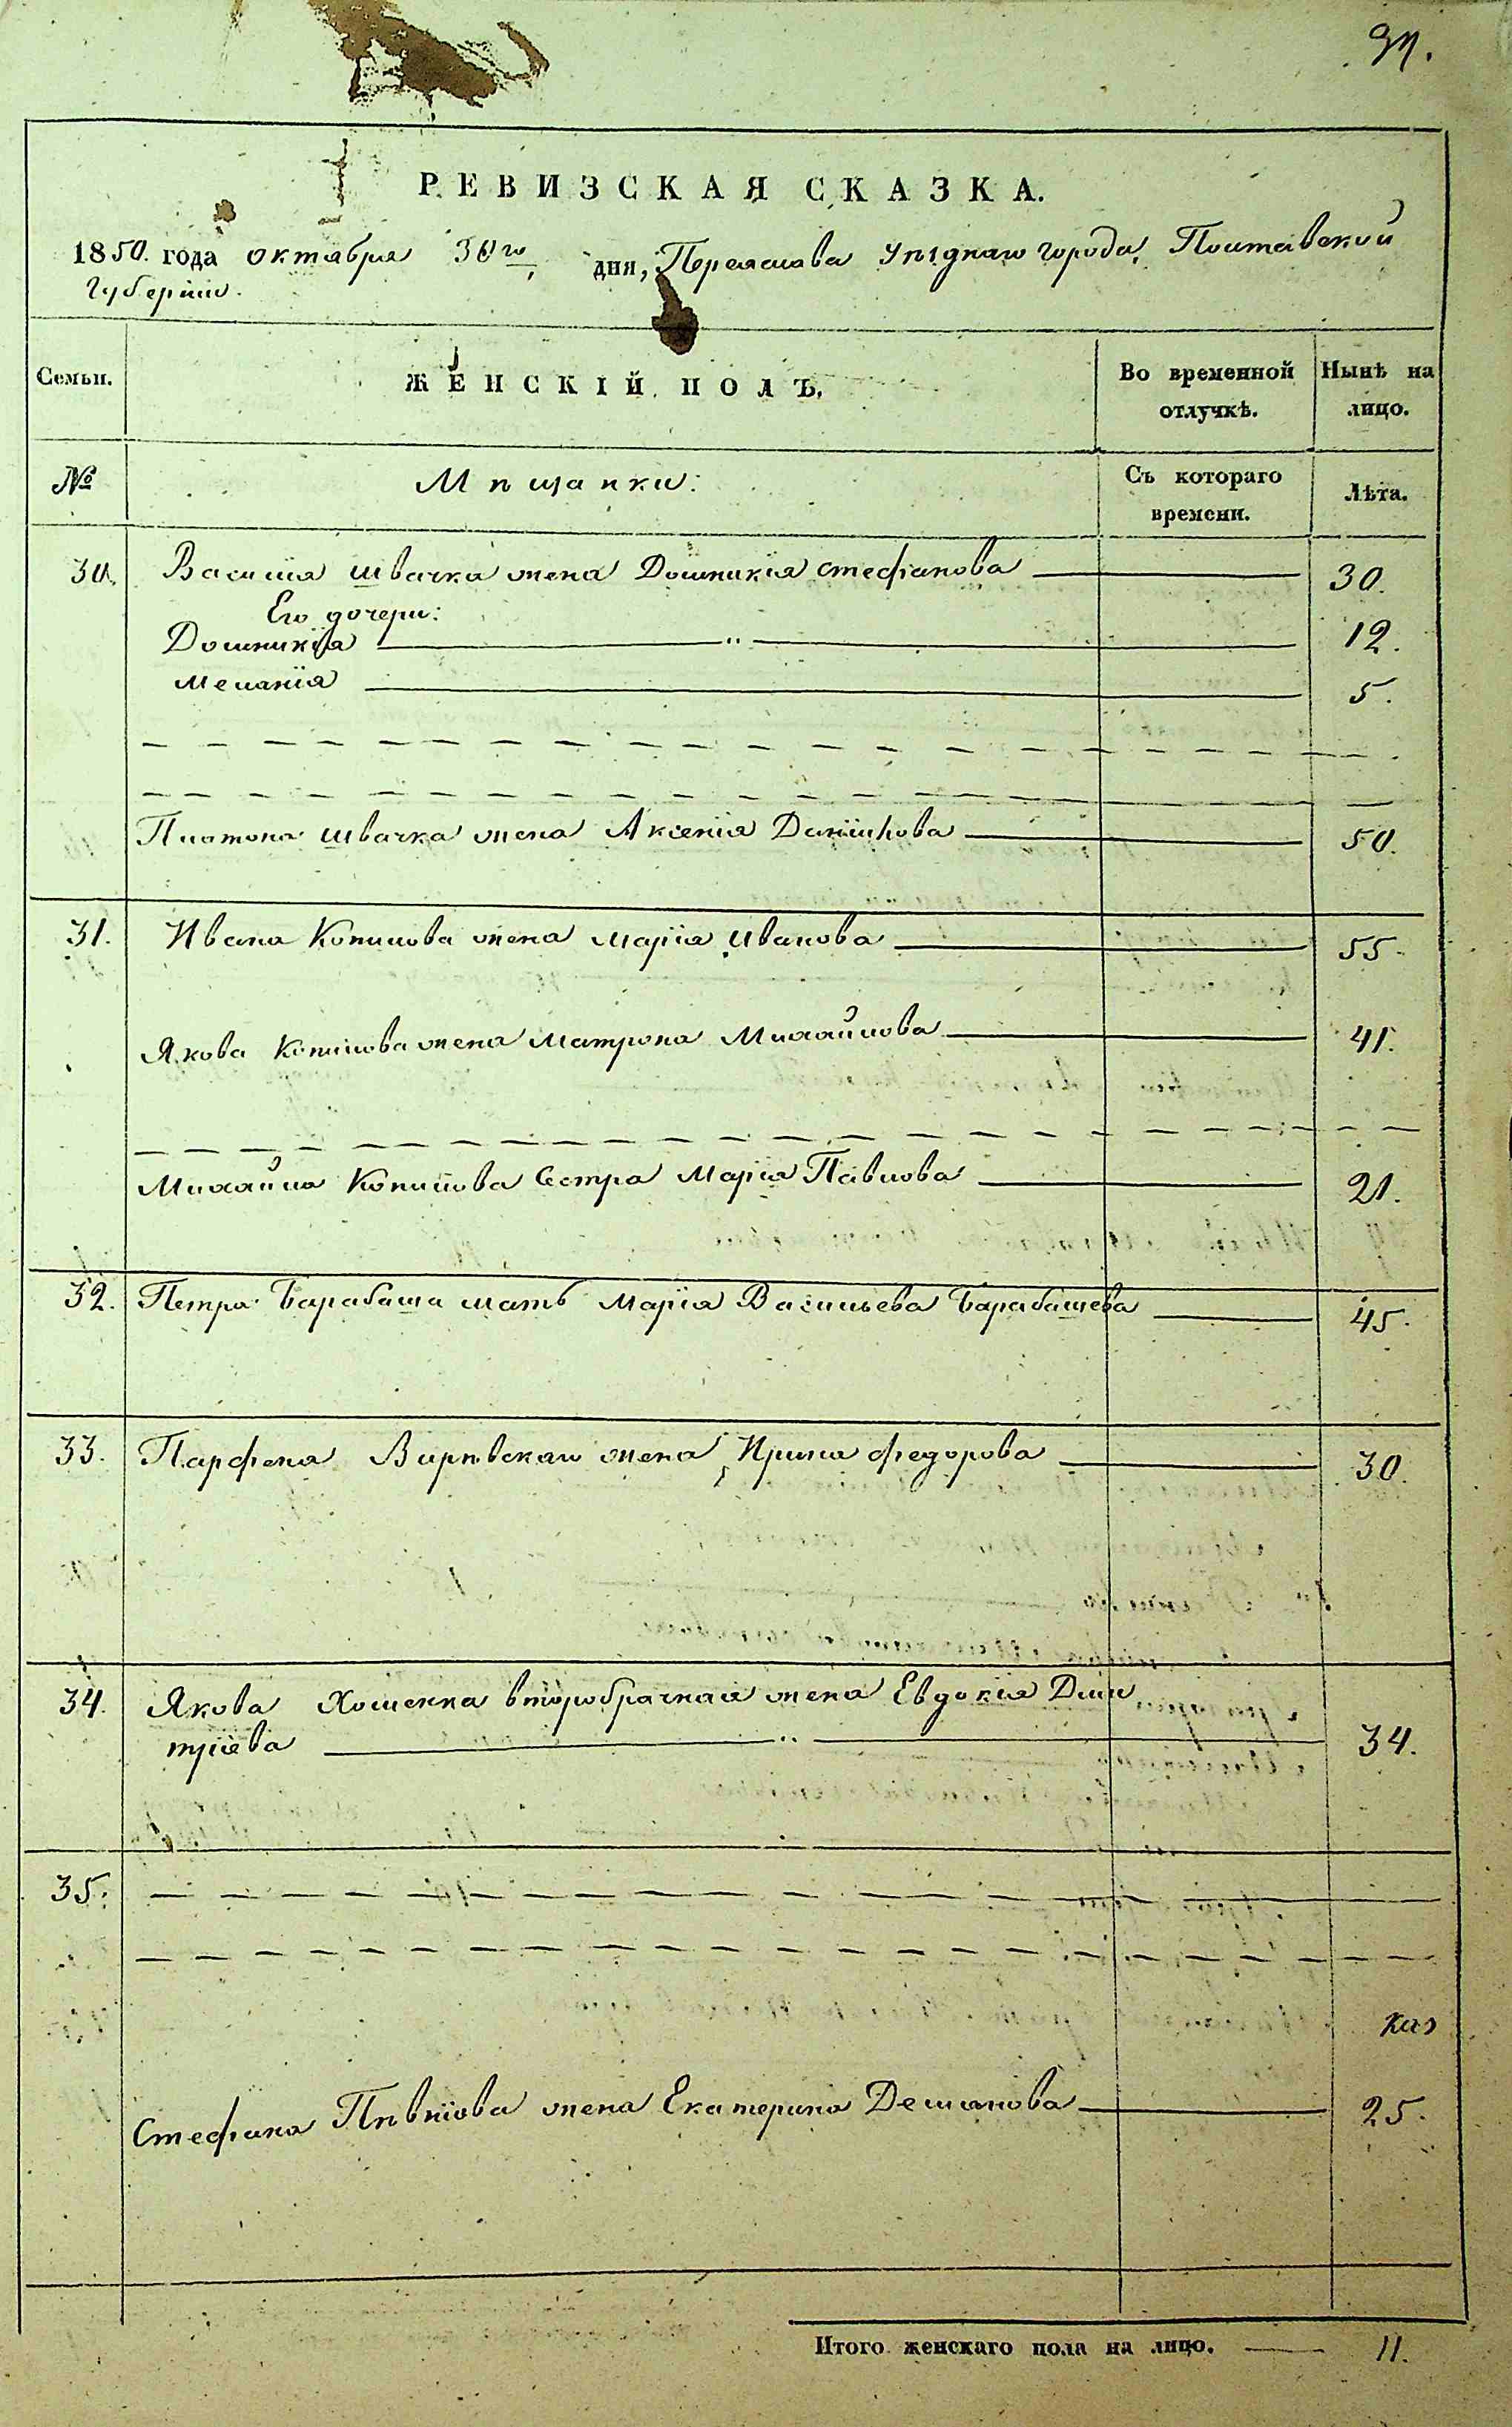 37.
РЕВИЗСКАЯ СКАЗКА.
1850. года октября 30го дня, Переяслава уѣзднаго города, Полтавской
Губерніи.
Семьи.
ЖЕНСКІЙ ПОЛЪ.
Во временной отлучкѣ.
Нынѣ на лицо.
№
Мѣщанки:
Съ котораго времени.
Лѣта.
30. Василія Швачка жена Домникія Стефанова 30.
Его дочери:
Домникія " 12.
Меланія 5.
Платона Швачка жена Аксенія Даніилова 50.
31. Ивана Копилова жена Марія Иванова 55.
Якова Копилова жена Матрона Михайлова 41.
Михайла Копилова Сестра Марія Павлова 21.
32. Петра Барабаша мать Марія Васильева Барабашева 45.
33. Парфена Вирѣвскаго жена Ирина Федорова 30.
34. Якова Хоменка второбрачная жена Евдокія Дми
тріева " 34.
35.
Стефана Пѣвнїова жена Екатерина Демянова 25.
Итого женскаго пола на лицо. 11.